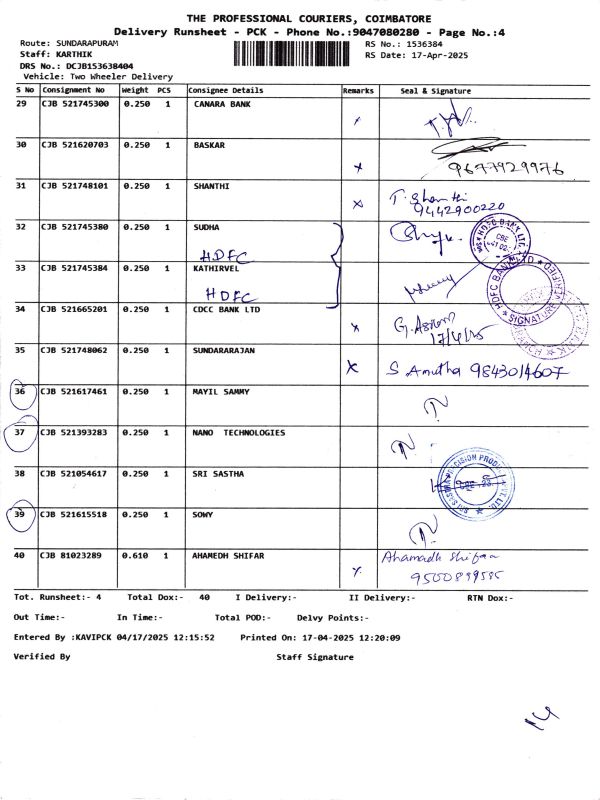 THE PROFESSIONAL COURIERS, COIMBATORE
Delivery Runsheet - PCK - Phone No.:9047080280 - Page No.:4
Route: SUNDARAPURAM RS No.: 1536384
Staff: KARTHIK RS Date: 17-Apr-2025
DRS No.: DCJB153638404
Vehicle: Two Wheeler Delivery
S No Consignment No Weight PCS Consignee Details Remarks Seal & Signature
29 CJB 521745300 0.250 1 CANARA BANK
30 CJB 521620703 0.250 1 BASKAR x 9677929976
31 CJB 521748101 0.250 1 SHANTHI x T. Shanthi
9442900220
32 CJB 521745380 0.250 1 SUDHA
HDFC
33 CJB 521745384 0.250 1 KATHIRVEL
HDFC
HDFC BANK LTD
SIGNATURE VERIFIED
34 CJB 521665201 0.250 1 CDCC BANK LTD x
17/4/25
35 CJB 521748062 0.250 1 SUNDARARAJAN x S Amutha 9843014607
36 CJB 521617461 0.250 1 MAYIL SAMMY
37 CJB 521393283 0.250 1 NANO TECHNOLOGIES
38 CJB 521054617 0.250 1 SRI SASTHA
39 CJB 521615518 0.250 1 SOWY
40 CJB 81023289 0.610 1 AHAMEDH SHIFAR Ahamadh Shifar
Tot. Runsheet:- 4 Total Dox:- 40 I Delivery:- II Delivery:- RTN Dox:-
Out Time:- In Time:- Total POD:- Delvy Points:-
Entered By :KAVIPCK 04/17/2025 12:15:52 Printed On: 17-04-2025 12:20:09
Verified By Staff Signature
14